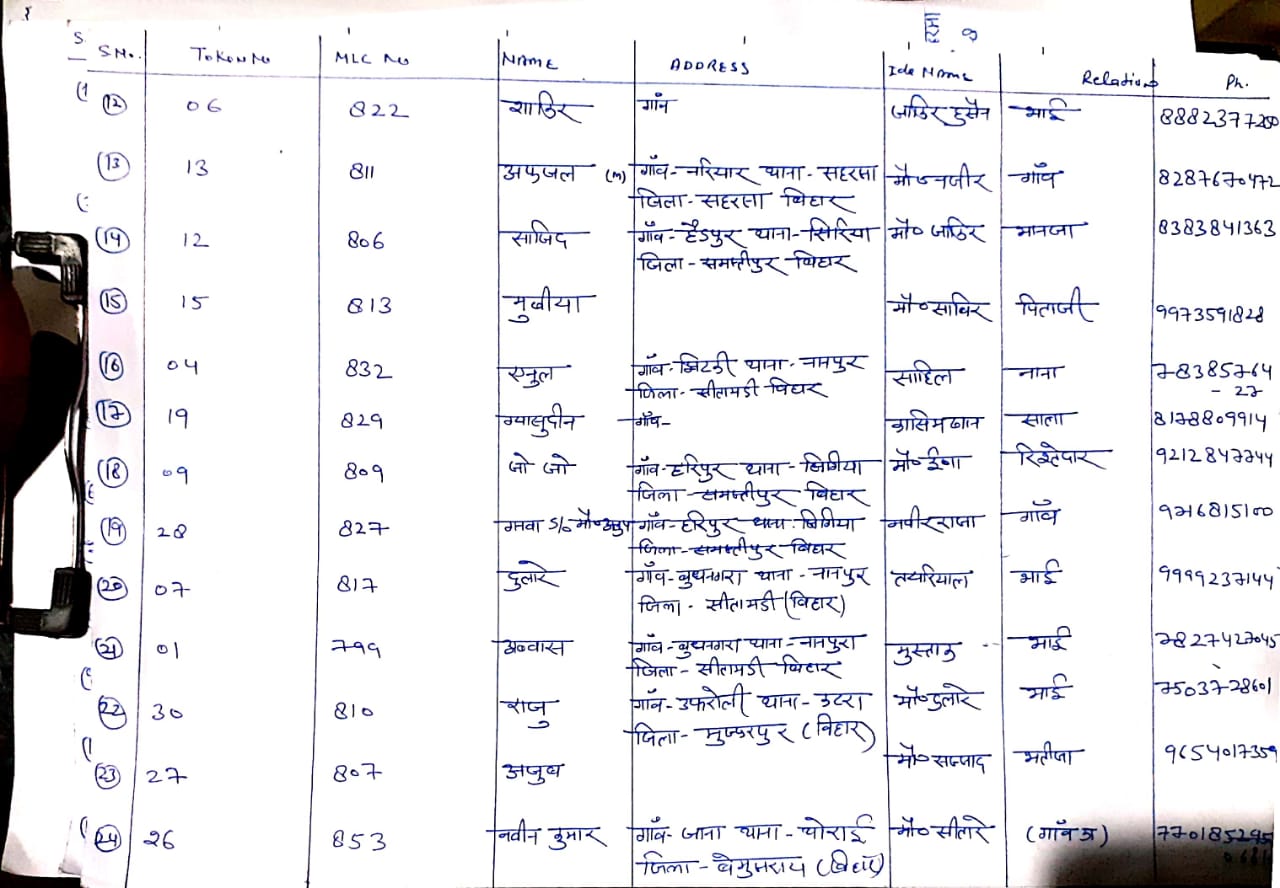 S.No. Token No MLC No NAME ADDRESS Ide Name Relation Ph.
12 06 822 शाकिर गाँव जाकिर हुसैन भाई 8882377200
13 13 811 अफजल (m) गाँव-नरियार थाना-सहरसा मौ० नजीर गाँव 8287670472
जिला-सहरसा बिहार
14 12 806 साजिद गाँव-हैडपुर थाना-सिंरिया मौ० जाकिर भानजा 8383841363
जिला-समस्तीपुर बिहार
15 15 813 मुखीया मौ०साबिर पिताजी 9973591828
16 04 832 एनुल गाँव- थाना-नानपुर साहिल नाना 78385764
जिला-सीतामडी बिहार - 27
17 19 829 ग्यासुदीन गाँव- कासिम खान साला 8178809914
18 09 809 जो जो गाँव-हरिपुर थाना- मौ० रिश्तेदार 9212847744
जिला-समस्तीपुर बिहार
19 28 827 S/o मौ० गाँव-हरिपुर थाना- गाँव 9716815100
जिला-समस्तीपुर बिहार
20 07 817 दुलारे गाँव-बुधनगरा थाना-नानपुर भाई 9999237144
जिला-सीतामडी (बिहार)
21 01 799 अब्बास गाँव-बुधनगरा थाना-नानपुरा मुस्ताक भाई 7827427045
जिला-सीतामडी बिहार
22 30 810 राजु गाँव-उफरोली थाना-उटरा मौ०दुलारे भाई 7503728601
जिला-मुज्फरपुर (बिहार)
23 27 807 अजुब मौ० सज्जाद भतीजा 9654017359
24 26 853 नवीन कुमार गाँव-जाना थाना- मौ० सीतारे (गाँव त्र)
जिला-बेगुसराय (बिहार)